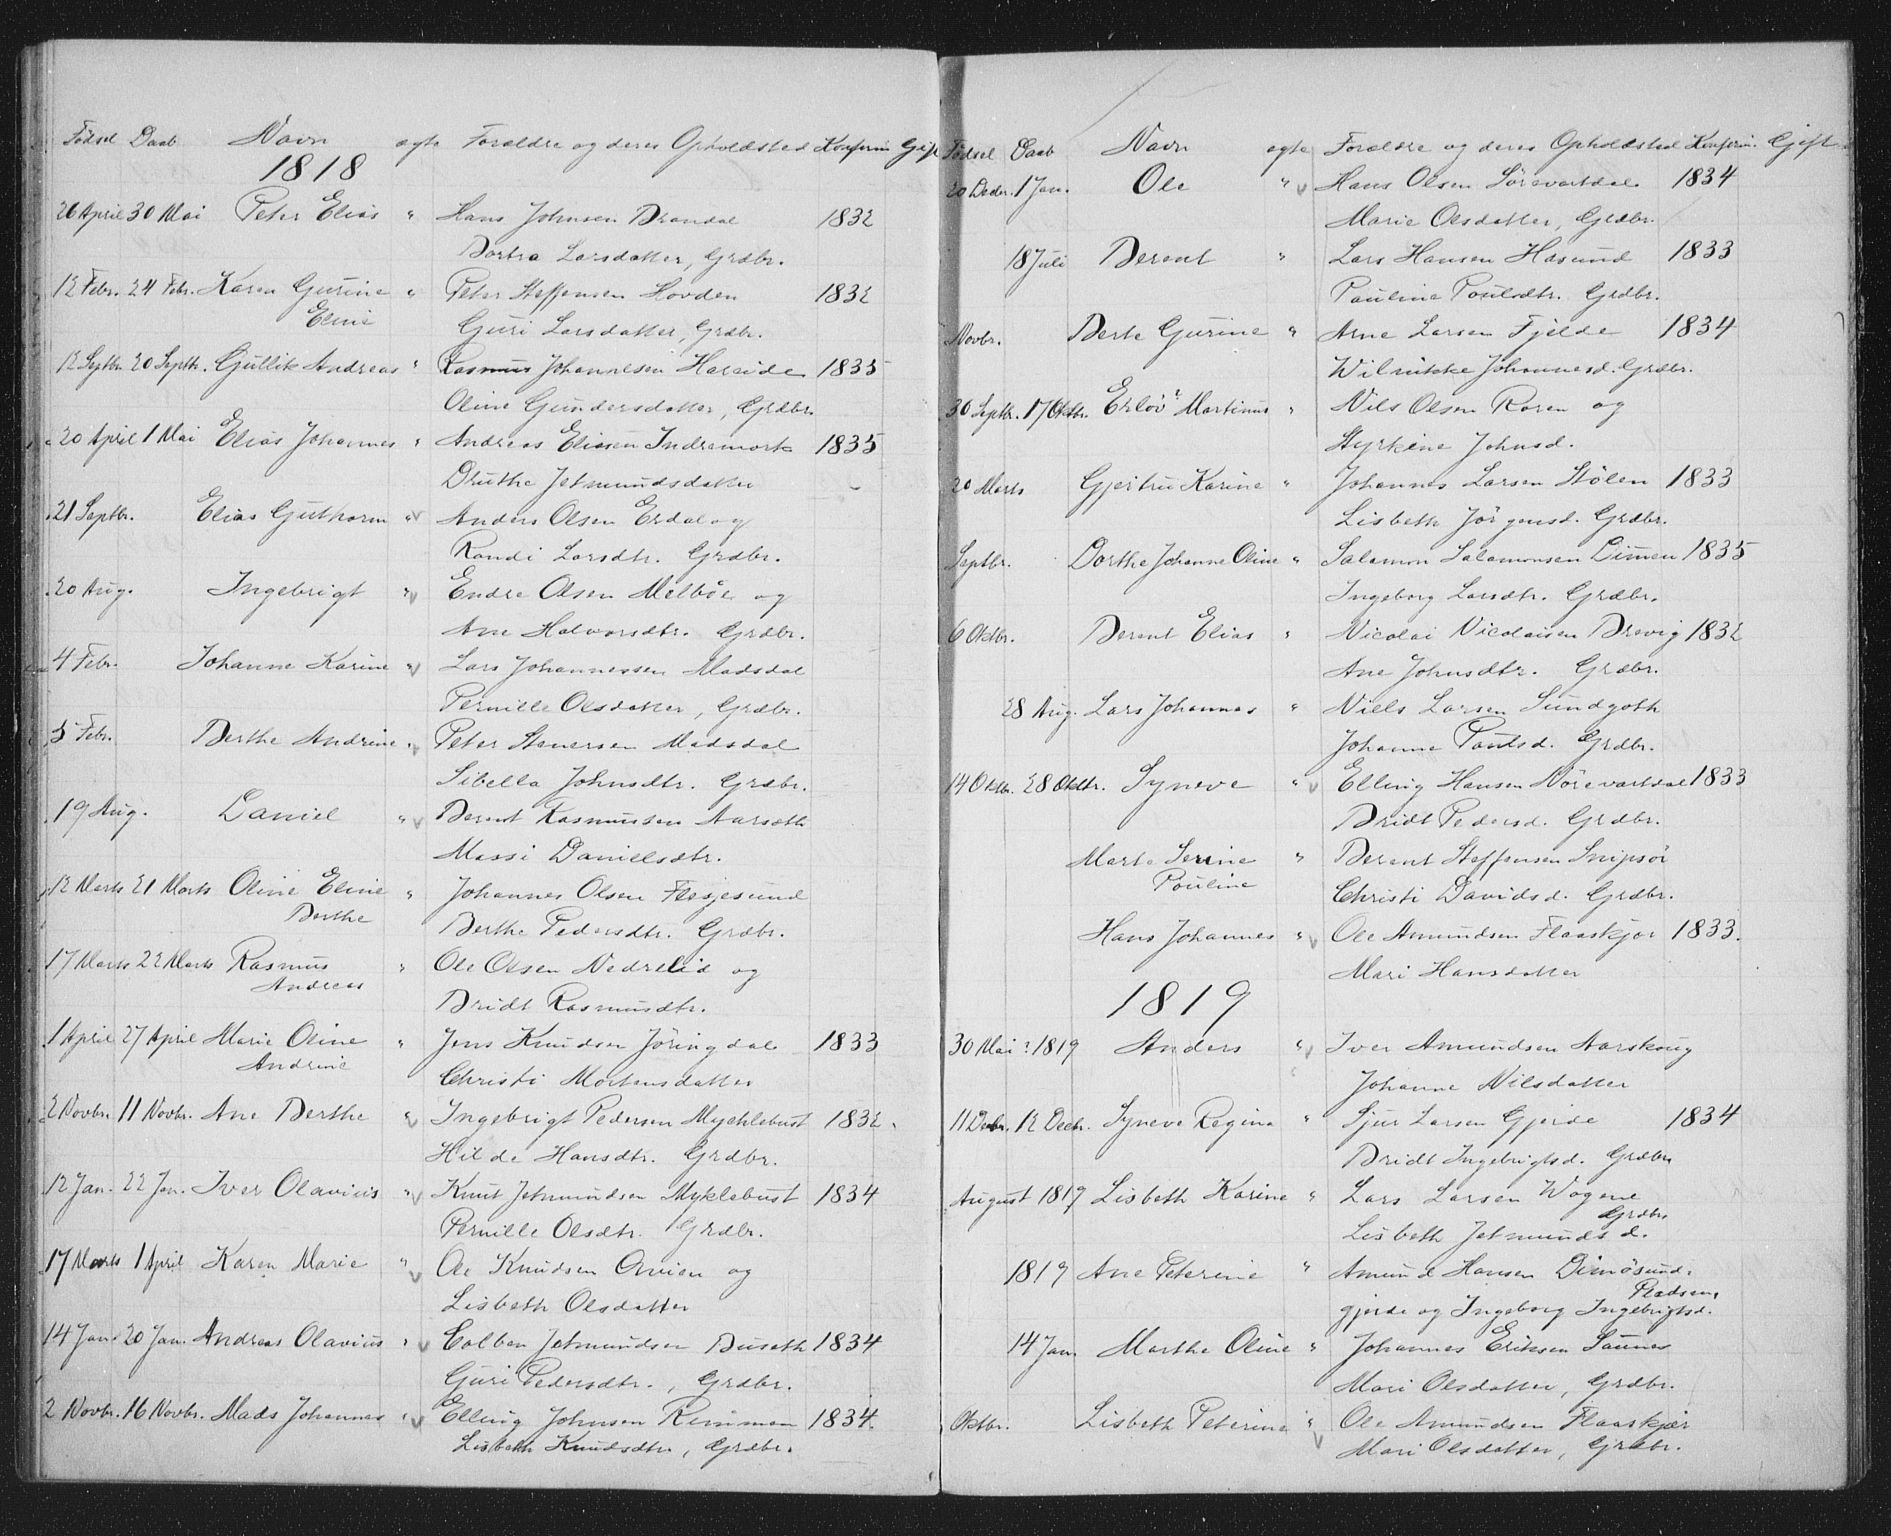 Fødsel Daab Navn ægte Forældre og deres Opholdsted Konfirm Gift
1818
26 April 30 Mai Peter Elias " Hans Johnsen Brandal 1832
Bortra Larsdatter, Grdbr.
12 Febr. 24 Febr. Karen Gurine " Peter Steffensen Hovden 1832
Eline
Guri Larsdatter, Grdbr.
12 Septbr. 20 Septbr. Gullik Andreas " Rasmus Johannesen Hareide 1835
Oline Gundersdatter, Grdbr.
20 April 1 Mai Elias Johannes " Andreas Eliesen Indremork 1835
Druthe Jetmundsdatter
21 Septbr. Elias Guthorm " Anders Olsen Erdal og
Randi Larsdtr. Grdbr.
20 Aug. Ingebrigt " Endre Olsen Melbøe og
Ane Halvorsdtr. Grdbr.
4 Febr. Johanne Karine " Lars Johannessen Madsdal
Pernille Olsdatter, Grdbr.
5 Febr. Berthe Andrine " Peter Stenersen Madsdal
Sibella Johnsdtr. Grdbr.
19 Aug. Daniel " Berent Rasmussen Aarseth
Massi Danielsdtr.
12 Marts 21 Marts Oline Eline " Johannes Olsen Flesjesund
Berthe
Berthe Pedersdtr. Grdbr.
17 Marts 22 Marts Rasmus " Ole Olsen Nedrelid og
Andreas
Bridt Rasmusdtr.
1 April 27 April Marie Oline " Jens Knudsen Jøringdal 1833
Andrine
Christi Mortensdatter
2 Novbr. 11 Novbr. Ane Berthe " Ingebrigt Pedersen Mychlebust 1832.
Hilde Hansdtr. Grdbr.
12 Jan. 22 Jan. Iver Olavius " Knut Jetmundsen Myklebust 1834
Pernille Olsdtr. Grdbr.
17 Marts 1 April Karen Marie " Ole Knudsen Qvien og
Lisbeth Olsdatter
14 Jan. 20 Jan. Andreas Olavius " Colben Jetmundsen Buseth 1834
Guri Pedersdtr., Grdbr.
2 Novbr. 16 Novbr. Mads Johannes " Elling Johnsen Remman 1834.
Lisbeth Knudsdtr, Grdbr.
Fødsel Daab Navn ægte Forældre og deres Opholdsted Konfirm. Gift
20 Decbr. 1 Jan. Ole " Hans Olsen Sørevartdal 1834
Marie Olsdatter, Grdbr.
18 Juli Berent " Lars Hansen Hasund 1833
Pauline Poulsdtr. Grdbr.
Novbr. Berte Gurine " Arne Larsen Fjelde 1834
Wilmikke Johannesd. Grdbr.
30 Septbr. 17 Oktbr. Erlov Martinus " Nils Olsen Raren og
Styrkine Johnsd.
20 Marts Gjertru Karine " Johannes Larsen Stølen 1833
Lisbeth Jørgensd. Grdbr.
Septbr. Dorthe Johanne Oline " Salamon Salamonsen Dimen 1835
Ingeborg Larsdtr. Grdbr.
6 Oktbr. Berent Elias " Nicolai Nicolaisen Brevig 1832
Ane Johnsdtr. Grdbr.
28 Aug. Lars Johannes " Niels Larsen Sundgoth
Johanne Poulsd. Grdbr.
14 Oktbr. 28 Oktbr. Syneve " Elling Hansen Nørevartdal 1833
Bridt Pedersd. Grdbr.
Marte Serine " Berent Steffensen Snipsør
Pouline
Christi Davidsd. Grdbr.
Hans Johannes " Ole Amundsen Flaaskjær 1833.
Mari Hansdatter
1819
30 Mai 1819 Anders " Iver Amundsen Aarskoug
Johanne Nilsdatter
11 Decbr. 12 Decbr. Syneve Regina " Sjur Larsen Gjerde 1834
Bridt Ingebrigtsd. Grdbr
August 1819 Lisbeth Karine " Lars Larsen Wogene
Grdbr
Lisbeth Jetmundsd.
1819 Ane Peterine " Amund Hansen Dimøsund.
Pladsen.
gjerde og Ingeborg Ingebrigtsd.
14 Jan. Marthe Oline " Johannes Eriksen Saunes
Mari Olsdatter, Grdbr.
Oktbr. Lisbeth Peterine " Ole Amundsen Flaaskjær
Mari Olsdatter, Grdbr.